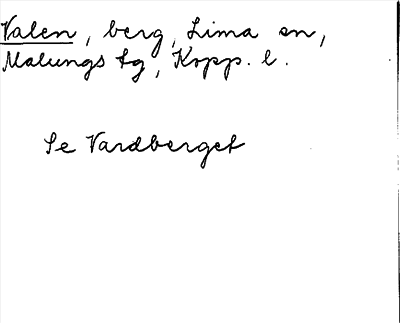 Valen, berg, Lima sn,
Malungs tg, Kopp. l.
Se Vardberget